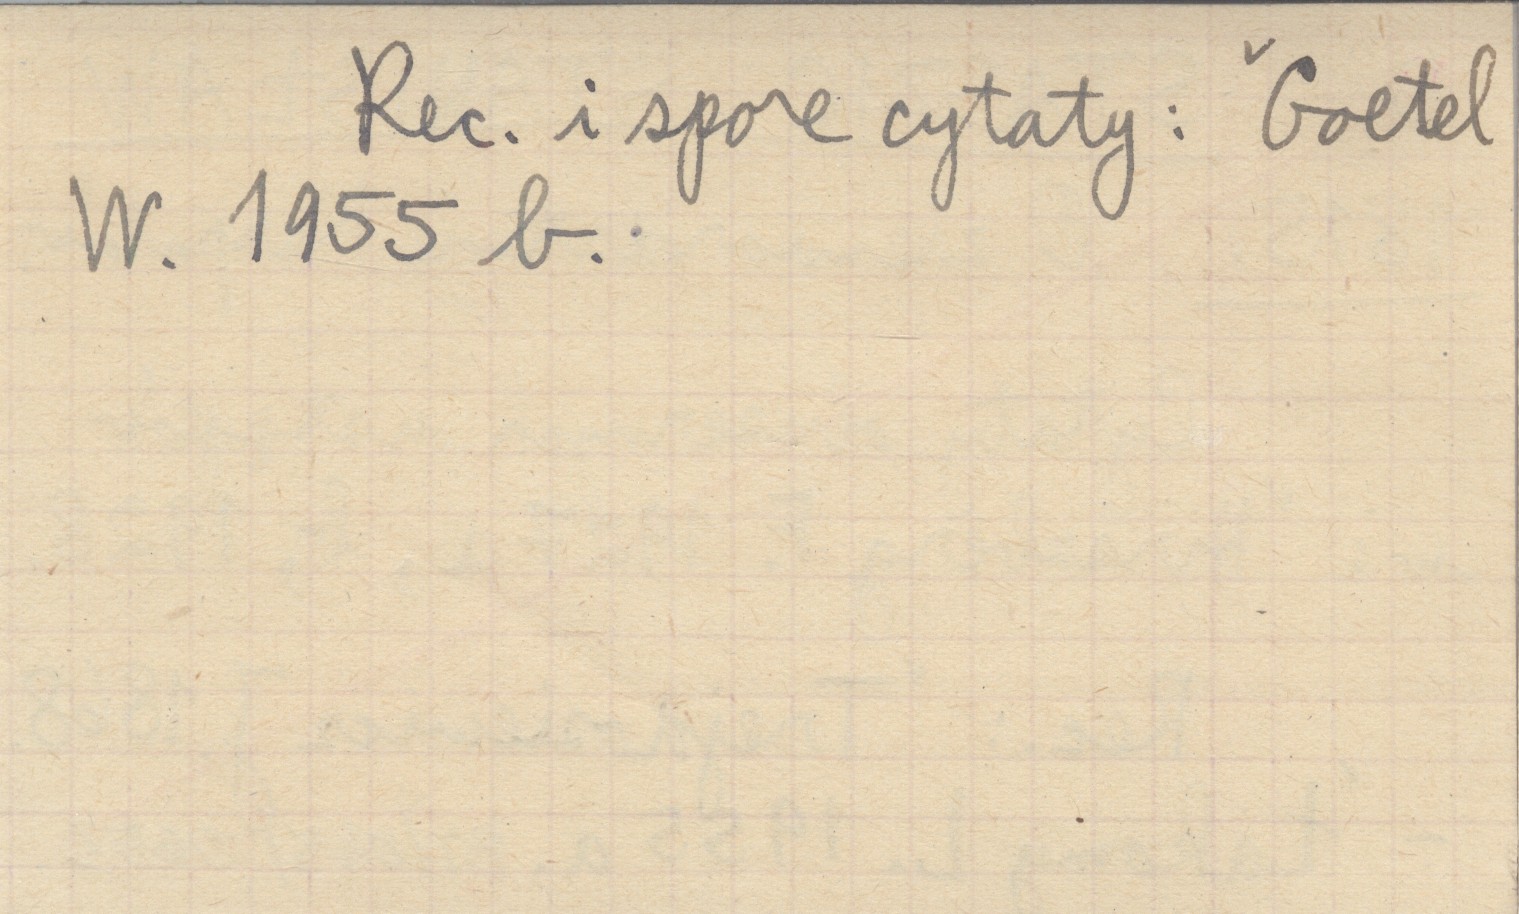 Rec. i spore cytaty: ˇGoetel
W. 1955 b.